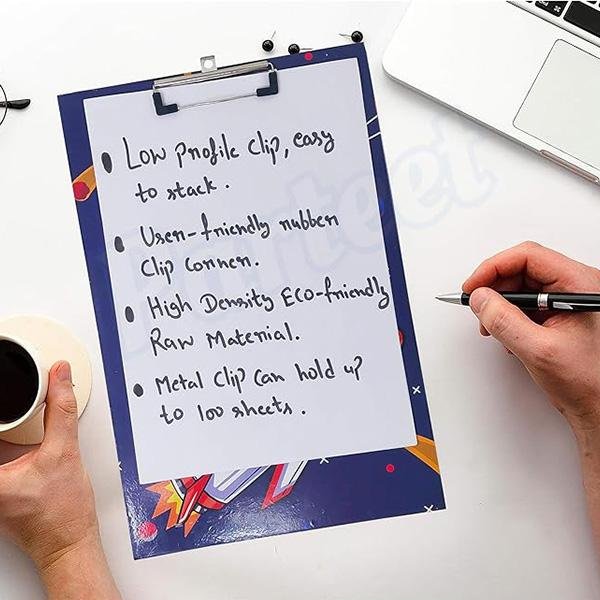 • Low Profile Clip, easy
to stack.
• User-friendly rubber
Clip Corner.
• High Density Eco-friendly
Raw Material.
• Metal Clip Can hold up
to 100 sheets.